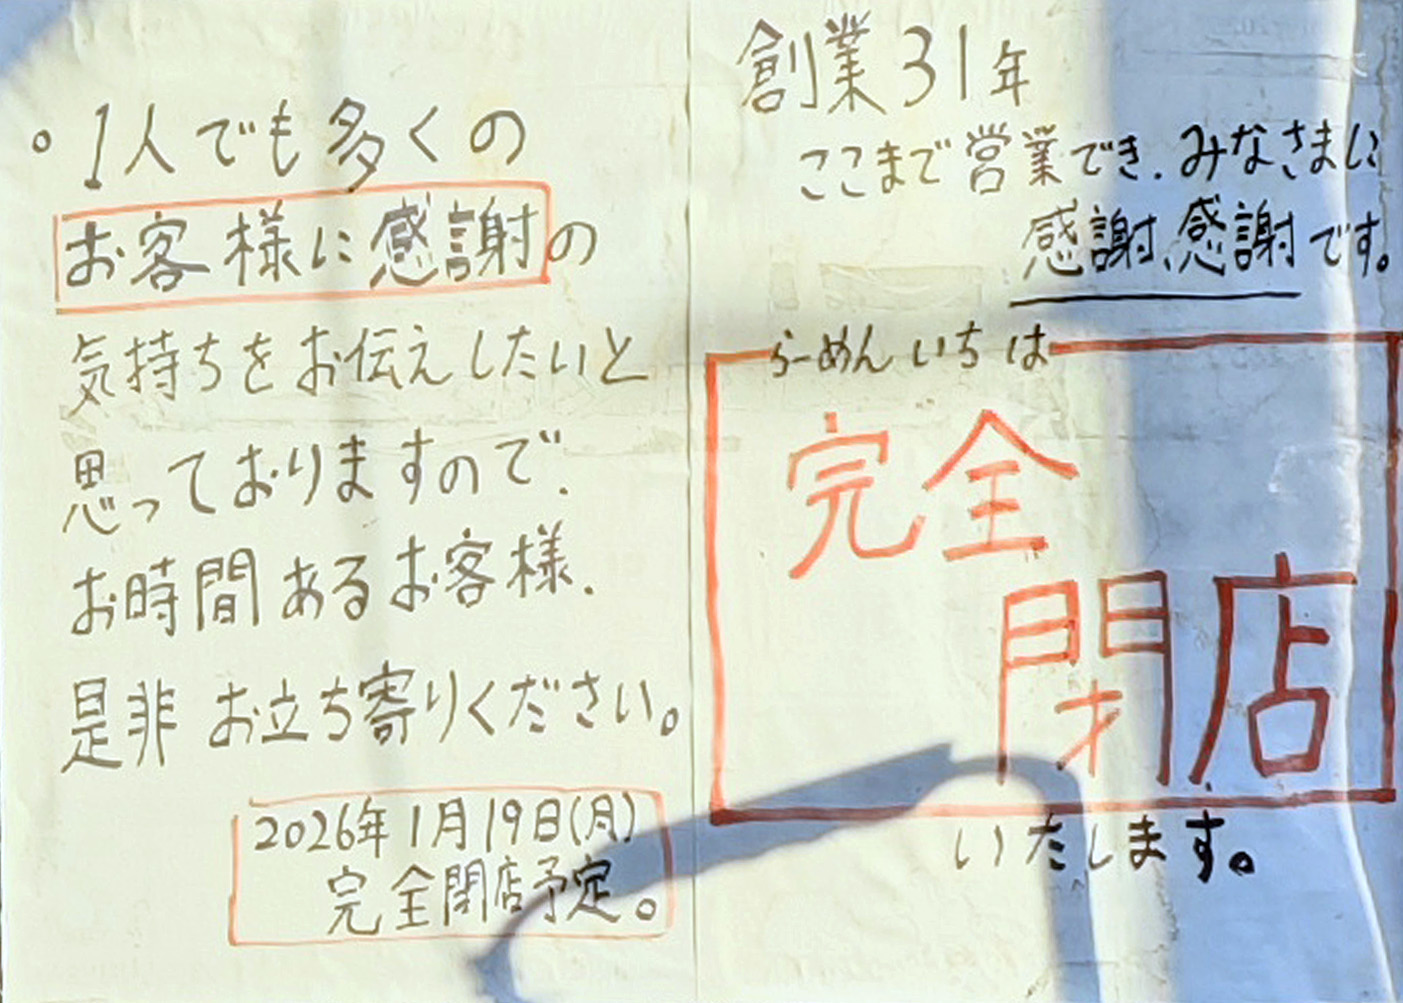 創業31年
ここまで営業でき.みなさまに
感謝、感謝です。
らーめん いちは
完全
閉店
いたします。
。1人でも多くの
お客様に感謝の
気持ちをお伝えしたいと
思っておりますので.
お時間あるお客様.
是非 お立ち寄りください。
2026年1月19日(月)
完全閉店予定。